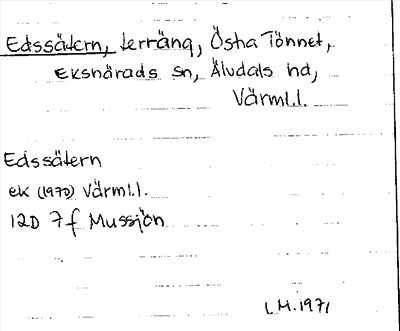 Edssätern, terräng, Östra Tönnet,
Ekshärads sn, Älvdals hd,
Värml.l.
Edssätern
ek (1970) Värml.l.
12D 7f Mussjön
L.M.1971